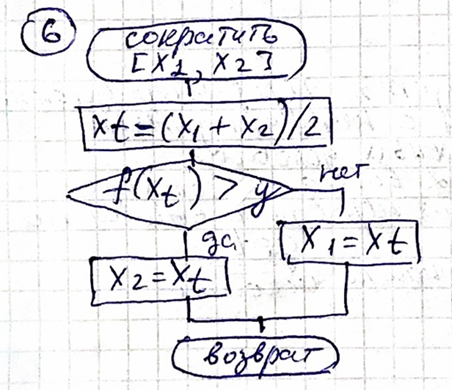 6
сократить
[X1, X2]
Xt=(X1+X2)/2
f(Xt)>y
нет
да
X1=Xt
X2=Xt
возврат